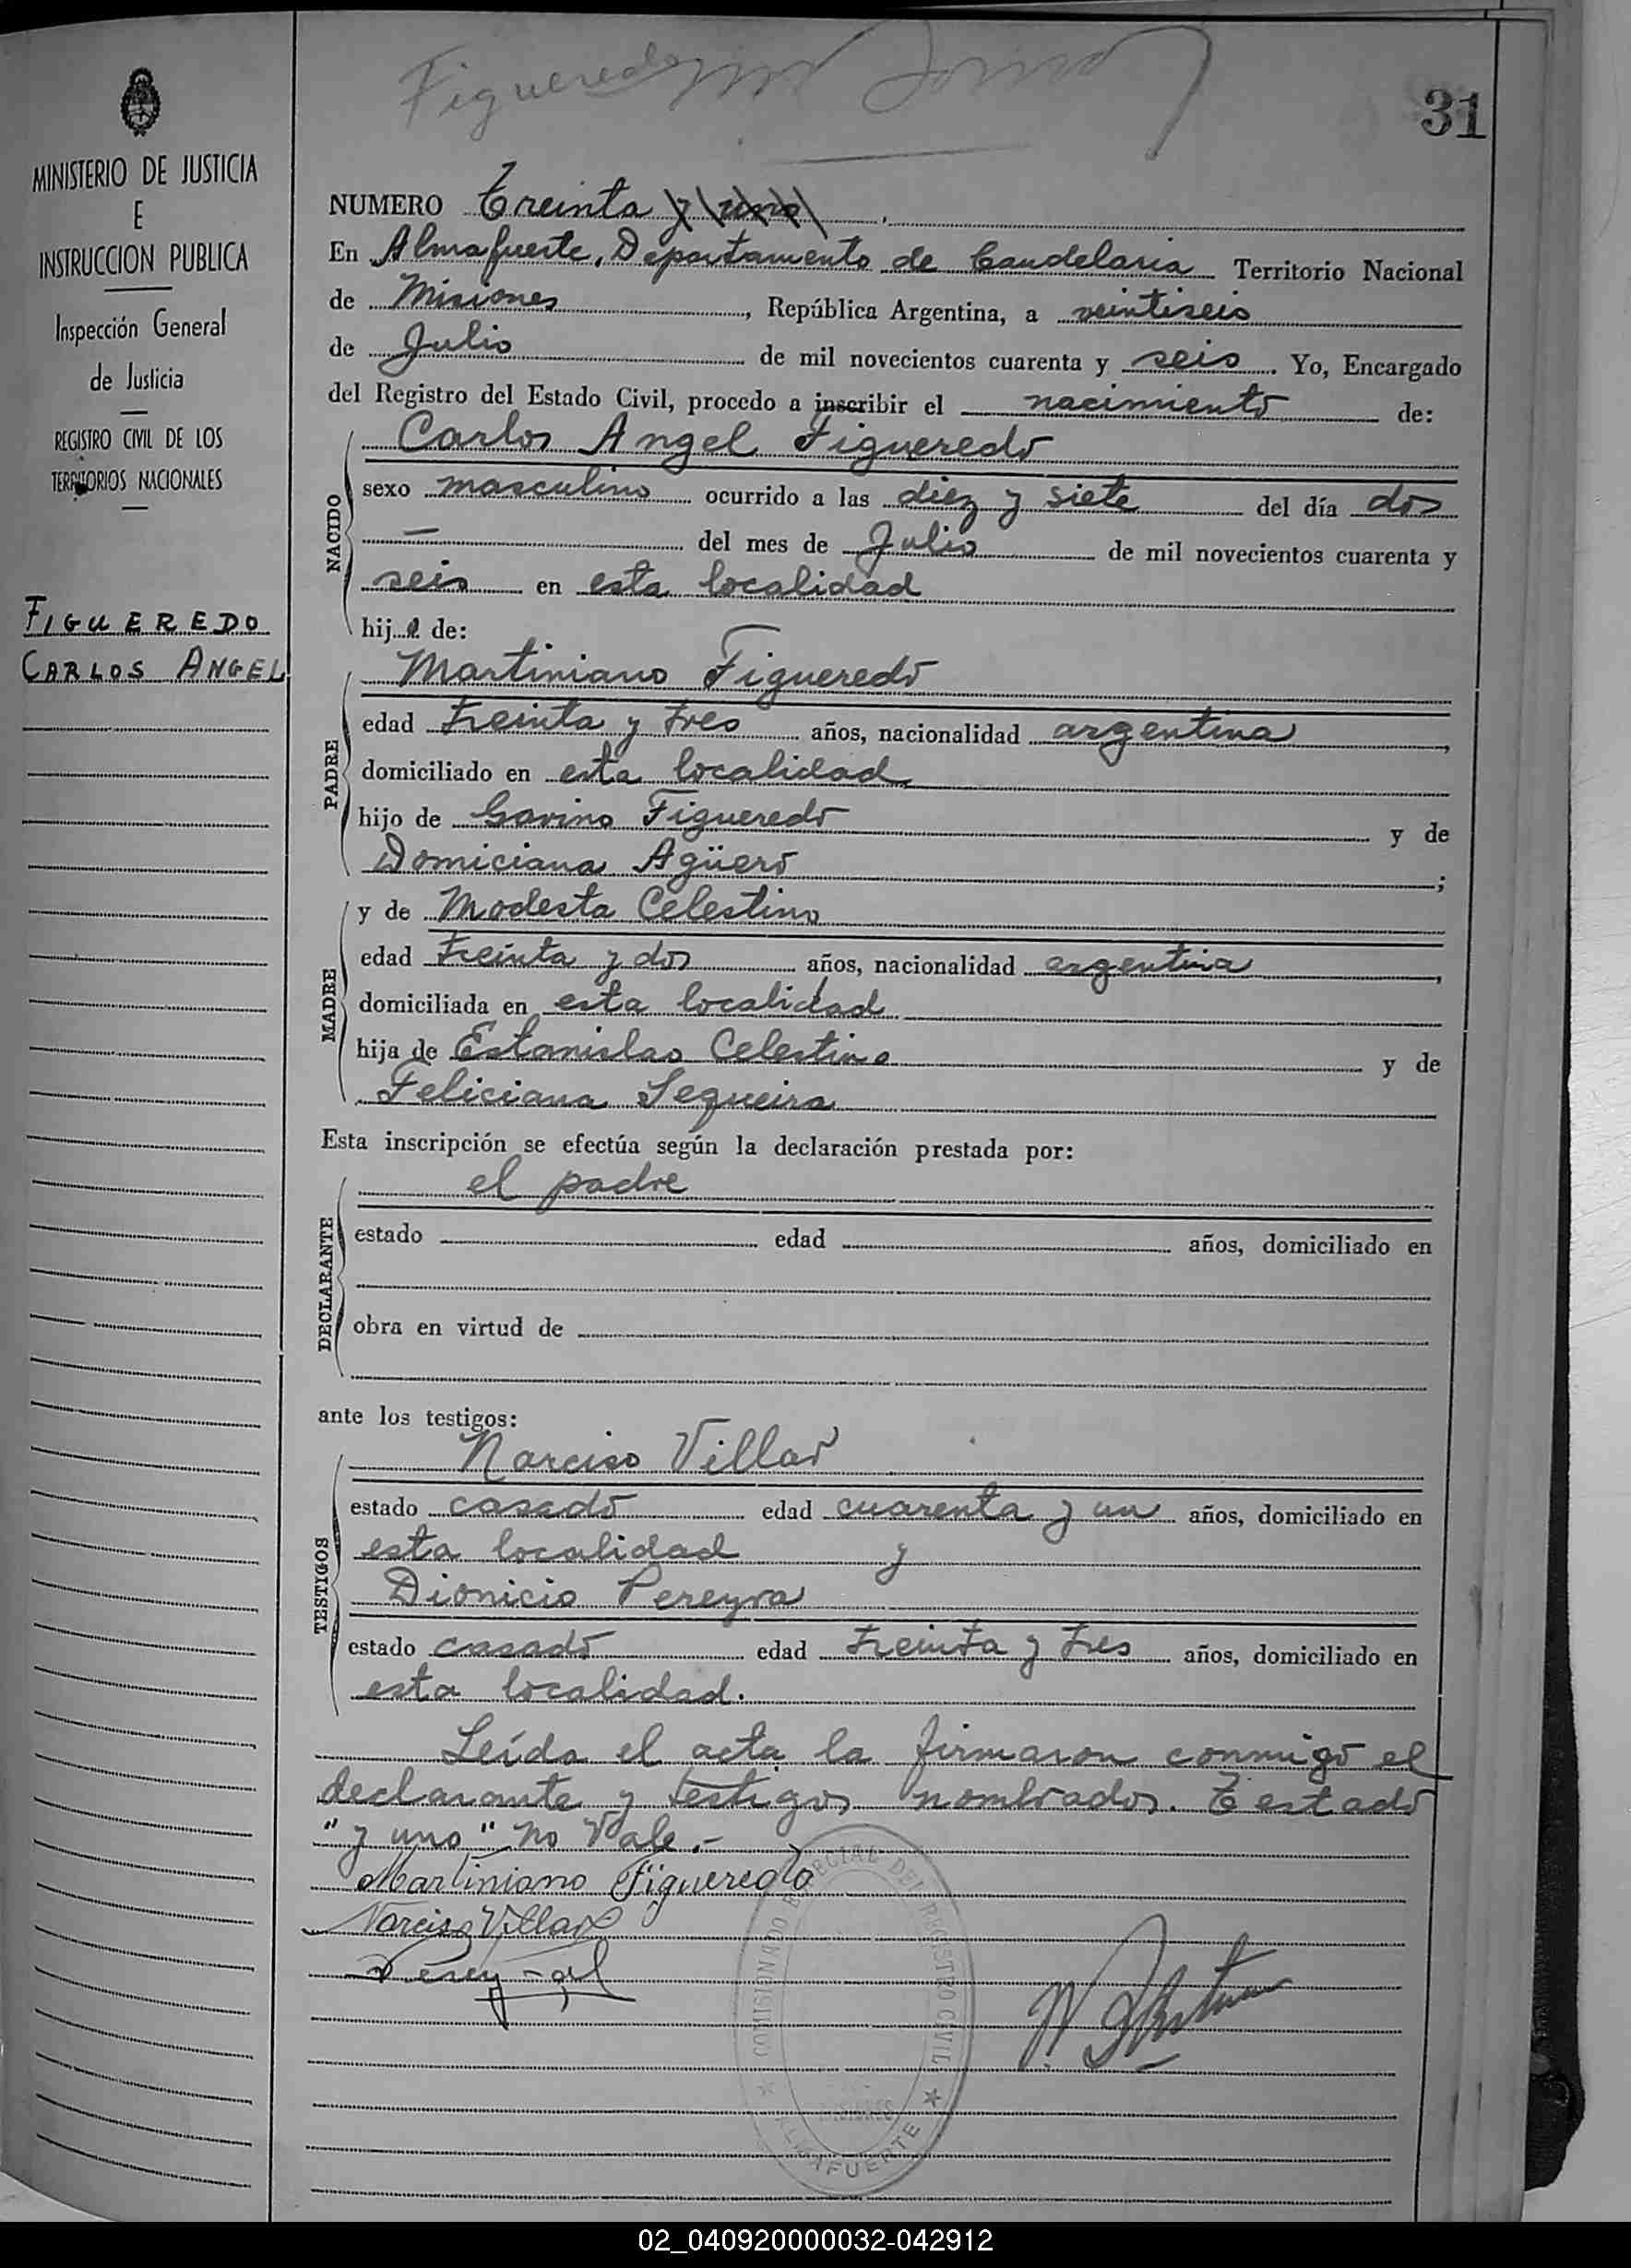 Figueredo
31
MINISTERIO DE JUSTICIA
E
INSTRUCCION PUBLICA
Inspección General
de Justicia
REGISTRO CIVIL DE LOS
TERRITORIOS NACIONALES
FIGUEREDO
CARLOS ANGEL
NUMERO Treinta y uno
En Almafuerte, Departamento de Candelaria Territorio Nacional
de Misiones, República Argentina, a veintiseis
de Julio de mil novecientos cuarenta y seis. Yo, Encargado
del Registro del Estado Civil, procedo a inscribir el nacimiento de:
NACIDO
Carlos Angel Figueredo
sexo masculino ocurrido a las diez y siete del día dos
— del mes de Julio de mil novecientos cuarenta y
seis en esta localidad
hijo de:
PADRE
Martiniano Figueredo
edad treinta y tres años, nacionalidad argentina,
domiciliado en esta localidad
hijo de Gavino Figueredo y de
Domiciana Agüero;
MADRE
y de Modesta Celestino
edad treinta y dos años, nacionalidad argentina,
domiciliada en esta localidad
hija de Estanislao Celestino y de
Feliciana Sequeira
Esta inscripción se efectúa según la declaración prestada por:
DECLARANTE
el padre
estado edad años, domiciliado en
obra en virtud de
ante los testigos:
TESTIGOS
Narciso Villar
estado casado edad cuarenta y un años, domiciliado en
esta localidad y
Dionicio Pereyra
estado casado edad treinta y tres años, domiciliado en
esta localidad.
Leída el acta la firmaron conmigo el
declarante y testigos nombrados. Testado
"y uno" no Vale.-
Martiniano Figueredo
Narciso Villar
COMISIONADO ESPECIAL DEL REGISTRO CIVIL
MISIONES
ALMAFUERTE
02_040920000032-042912